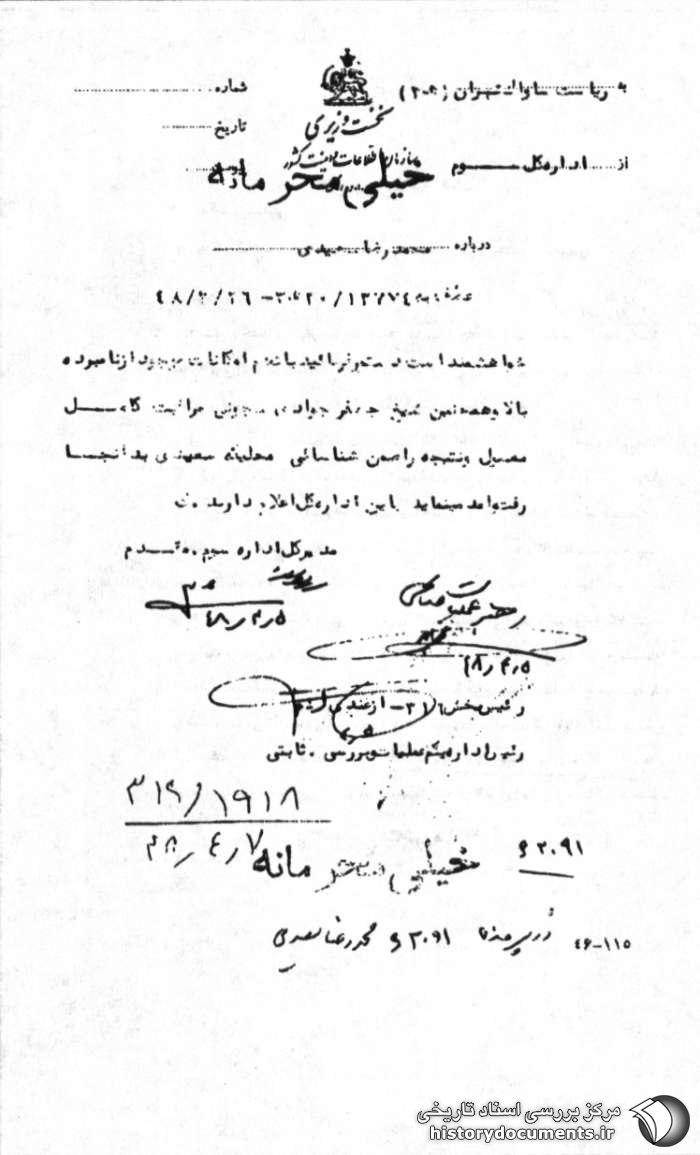 به ریاست ساواک تهران (۲۰ه) شماره
نخست وزیری
تاریخ
سازمان اطلاعات و امنیت کشور
از اداره کل سوم
خیلی محرمانه
درباره محمدرضا سعیدی
۴۸/۳/۲۶ -
خواهشمند است دستور فرمائید با تمام امکانات موجود از نامبرده
بالا و همچنین شیخ جعفر جوادی شجونی مراقبت کامل
معمول و نتیجه را ضمن شناسائی محلیکه سعیدی بدانجا
رفت و آمد مینماید باین اداره کل اعلام دارند.
مدیر کل اداره سوم. مقدم
۴۸/۴/۵
رهبر عملیات
۴۸/۴/۵
رئیس بخش ۳۱۲- ازغندی
رئیس اداره یکم عملیات و بررسی. ثابتی
۳۱۲/۱۹۱۸
۴۸/۴/۷
خیلی محرمانه
۲۰۹۱ و
در پرونده محمدرضا سعیدی ۲۰۹۱ و
۴۶-۱۱۵
مرکز بررسی اسناد تاریخی
historydocuments.ir